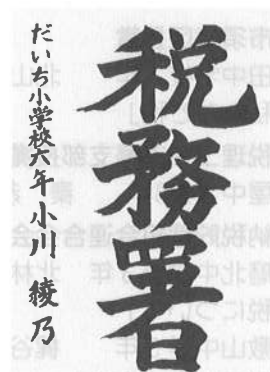 税務署
だいち小学校六年 小川 綾乃